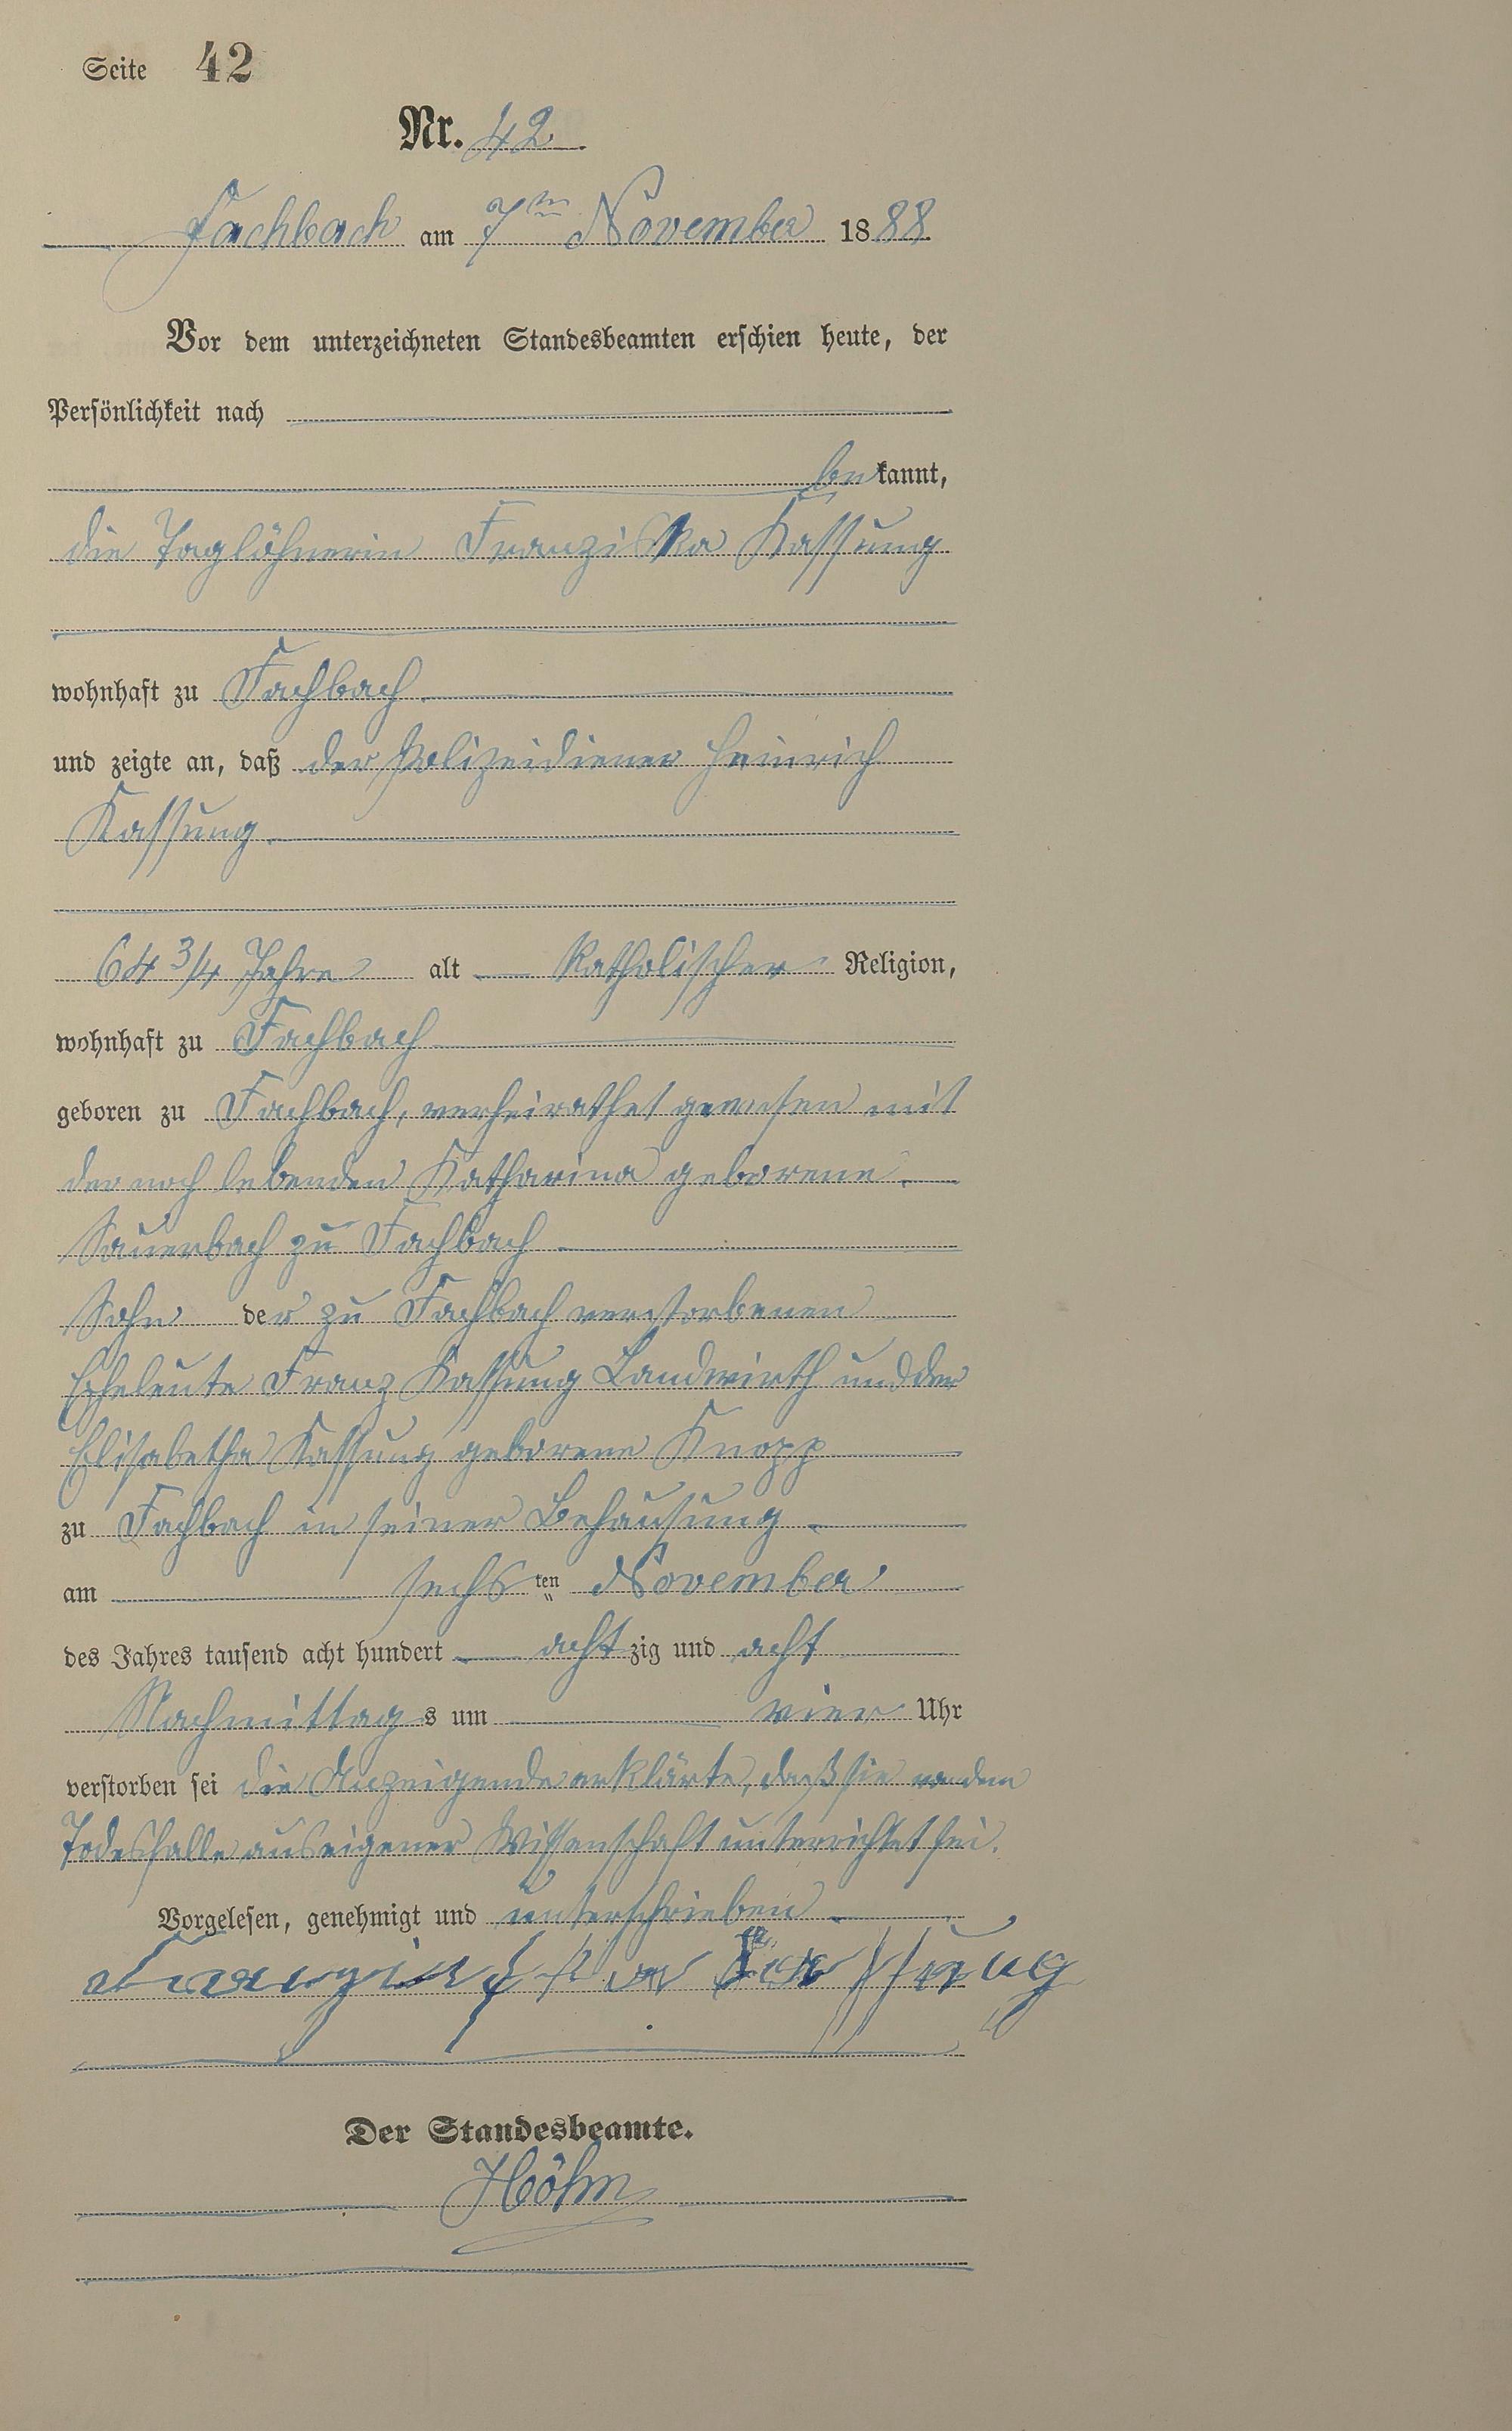 Seite 42
Nr. 42.
Fachbach am 7ten November 1888.
Vor dem unterzeichneten Standesbeamten erschien heute, der
Persönlichkeit nach
bekannt,
die Taglöhnerin Franziska Kassung
wohnhaft zu Fachbach.
und zeigte an, daß der Polizeidiener Heinrich
Kassung.
64 3/4 Jahre alt katholischer Religion,
wohnhaft zu Fachbach
geboren zu Fachbach, verheirathet gewesen mit
der noch lebenden Katharina geborene
Sauerbach zu Fachbach
Sohn der zu Fachbach verstorbenen
Eheleute Franz Kassung Landwirth und der
Elisabetha Kassung geborene Knopp
zu Fachbach in seiner Behausung
am sechsten November
des Jahres tausend acht hundert achtzig und acht
Nachmittags um vier Uhr
verstorben sei die Anzeigende erklärte, daß sie von dem
Todesfalle aus eigener Wissenschaft unterrichtet sei.
Vorgelesen, genehmigt und unterschrieben
Franziska Kassung
Der Standesbeamte.
Höhn